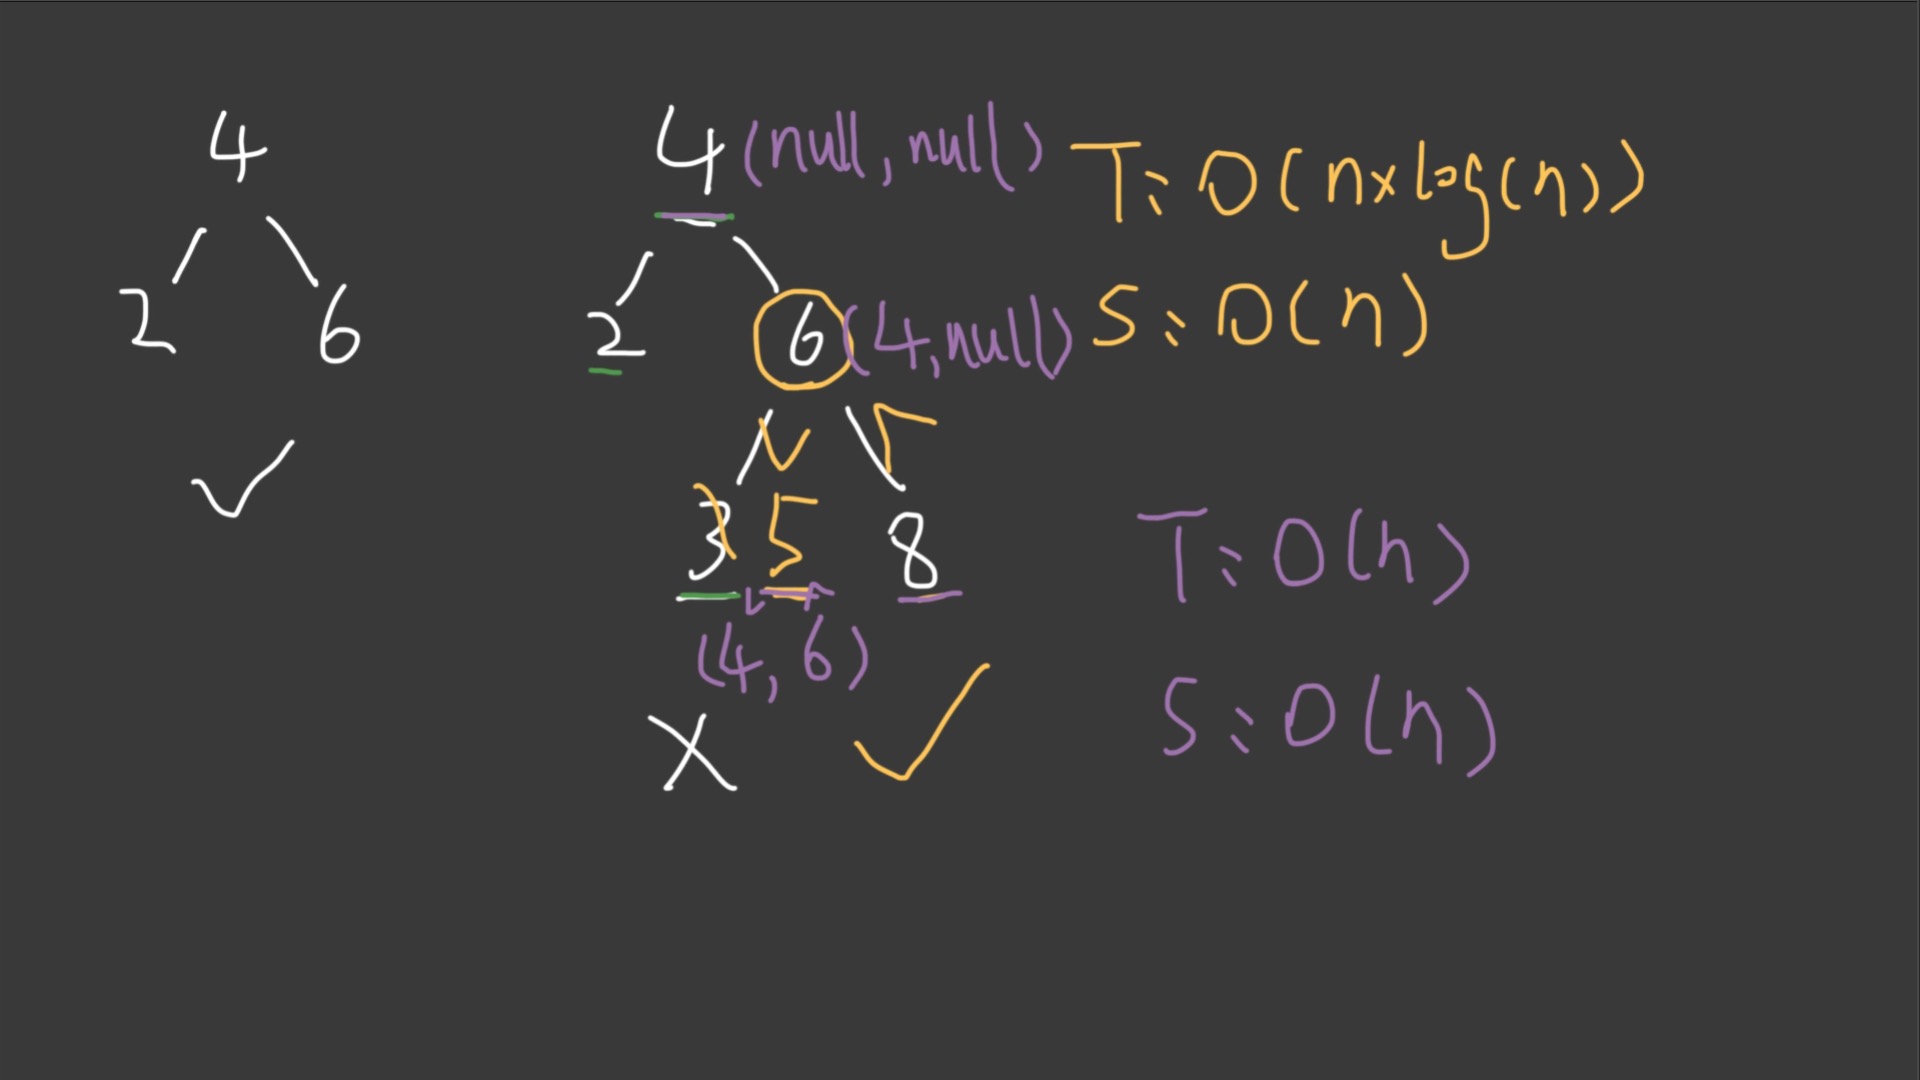 4
2 6
4 (null, null)
2 6 (4, null)
3 5 8
(4, 6)
T: O(n×log(n))
S: O(n)
T: O(n)
S: O(n)